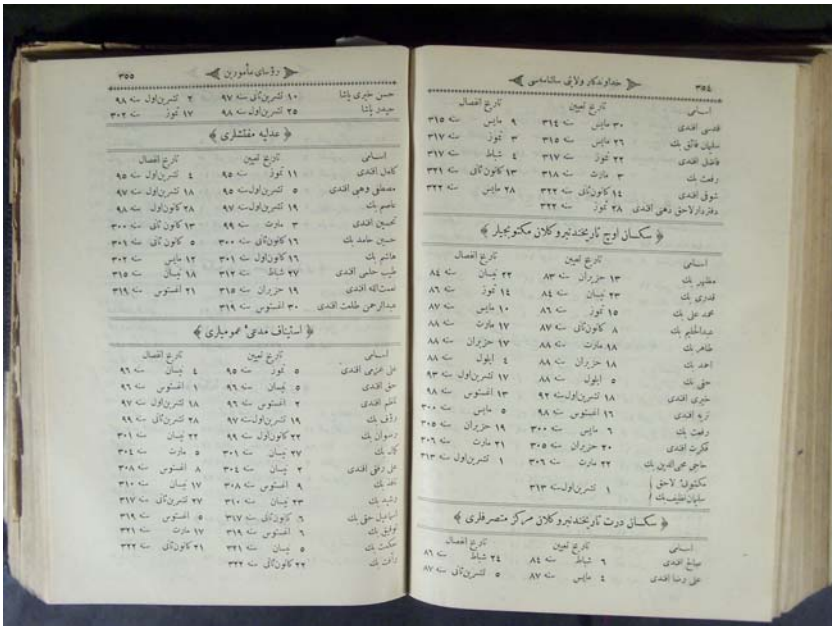 ٣٥٤ خداوندكار ولايتى سالنامه‌سى
اسامى تاريخ تعيين تاريخ انفصال
قدسى افندى ٣٠ مايس سنه ٣١٤ ٩ مايس سنه ٣١٥
سليمان فائق بك ٢٦ مايس سنه ٣١٥ ٣ تموز سنه ٣١٧
فاضل افندى ٢٢ تموز سنه ٣١٧ ٤ شباط سنه ٣١٧
رفعت بك ٣ مارت سنه ٣١٨ ١٣ كانون ثانى سنه ٣٢١
شوقى افندى ١٤ كانون ثانى سنه ٣٢٢ ٢٨ مايس سنه ٣٢٢
دفتردار لاحق ذهنى افندى ٢٨ تموز سنه ٣٢٢
سكسان اوچ تاريخندنبرو كلان مكتوبجيلر
اسامى تاريخ تعيين تاريخ انفصال
مظهر بك ١٣ حزيران سنه ٨٣ ٢٢ نيسان سنه ٨٤
قدرى بك ٢٣ نيسان سنه ٨٤ ١٤ تموز سنه ٨٦
محمد على بك ١٥ تموز سنه ٨٦ ١٠ مايس سنه ٨٧
عبدالحليم بك ٨ كانون ثانى سنه ٨٧ ١٧ مارت سنه ٨٨
طاهر بك ١٨ مارت سنه ٨٨ ١٧ حزيران سنه ٨٨
احمد بك ١٨ حزيران سنه ٨٨ ٤ ايلول سنه ٨٨
حقى بك ٥ ايلول سنه ٨٨ ١٧ تشرين اول سنه ٩٣
خيرى افندى ١٨ تشرين اول سنه ٩٢ ١٣ اغستوس سنه ٩٨
نزيه افندى ١٦ اغستوس سنه ٩٨ ٥ مايس سنه ٣٠٠
رفعت بك ٦ مايس سنه ٣٠٠ ١٩ حزيران سنه ٣٠٥
فكرت افندى ٢٠ حزيران سنه ٣٠٥ ٢١ مارت سنه ٣٠٦
حاجى محى الدين بك ٢٢ مارت سنه ٣٠٦ ١ تشرين اول سنه ٣١٣
مكتوبئ لاحق
سليمان نظيف بك ١ تشرين اول سنه ٣١٣
سكسان درت تاريخندنبرو كلان مركز متصرفلرى
اسامى تاريخ تعيين تاريخ انفصال
صالح افندى ٦ شباط سنه ٨٤ ٢٤ شباط سنه ٨٦
على رضا افندى ٤ مايس سنه ٨٧ ٥ تشرين ثانى سنه ٨٧
رؤساى مأمورين ٣٥٥
حسن خيرى پاشا ١٠ تشرين ثانى سنه ٩٧ ٢ تشرين اول سنه ٩٨
حيدر پاشا ٢٥ تشرين اول سنه ٩٨ ١٧ تموز سنه ٣٠٢
عدليه مفتشلرى
اسامى تاريخ تعيين تاريخ انفصال
كامل افندى ١١ تموز سنه ٩٥ ٤ تشرين اول سنه ٩٥
مصطفى وهبى افندى ٥ تشرين اول سنه ٩٥ ١٨ تشرين اول سنه ٩٧
عاصم بك ١٩ تشرين اول سنه ٩٧ ٢٨ كانون اول سنه ٩٨
تحسين افندى ٣ مارت سنه ٩٩ ١٣ كانون ثانى سنه ٣٠٠
حسين حامد بك ١٦ كانون ثانى سنه ٣٠٠ ٥ كانون ثانى سنه ٣٠١
هاشم بك ١٦ كانون اول سنه ٣٠١ ١٢ مايس سنه ٣٠٢
طيب حلمى افندى ٢٧ شباط سنه ٣١٢ ١٨ نيسان سنه ٣١٥
نعمت الله افندى ١٩ حزيران سنه ٣١٥ ٢١ اغستوس سنه ٣١٩
عبدالرحمن طلعت افندى ٣٠ اغستوس سنه ٣١٩
استيناف مدعئ عموميلرى
اسامى تاريخ تعيين تاريخ انفصال
على عزمى افندى ٥ تموز سنه ٩٥ ٤ نيسان سنه ٩٦
حقى افندى ٥ نيسان سنه ٩٦ ١ اغستوس سنه ٩٦
ناظم افندى ٢ اغستوس سنه ٩٦ ١٨ تشرين اول سنه ٩٧
رؤف بك ١٩ تشرين اول سنه ٩٧ ٢٨ نيسان سنه ٩٩
رضوان بك ٢٢ كانون اول سنه ٩٩ ٢٢ نيسان سنه ٣٠١
كمال بك ٢٧ نيسان سنه ٣٠١ ٥ مارت سنه ٣٠٤
على رفقى افندى ٢ نيسان سنه ٣٠٤ ٨ اغستوس سنه ٣٠٨
بك ٩ اغستوس سنه ٣٠٨ ١٧ نيسان سنه ٣١٠
رشيد بك ٢٣ نيسان سنه ٣١٠ ٢٧ تشرين ثانى سنه ٣١٧
اسماعيل حقى بك ٦ كانون ثانى سنه ٣١٧ ٥ اغستوس سنه ٣١٩
توفيق بك ٦ اغستوس سنه ٣١٩ ١٧ مارت سنه ٣٢١
حكمت بك ٥ نيسان سنه ٣٢١ ٢١ كانون ثانى سنه ٣٢٢
رأفت بك ٢٢ كانون ثانى سنه ٣٢٢